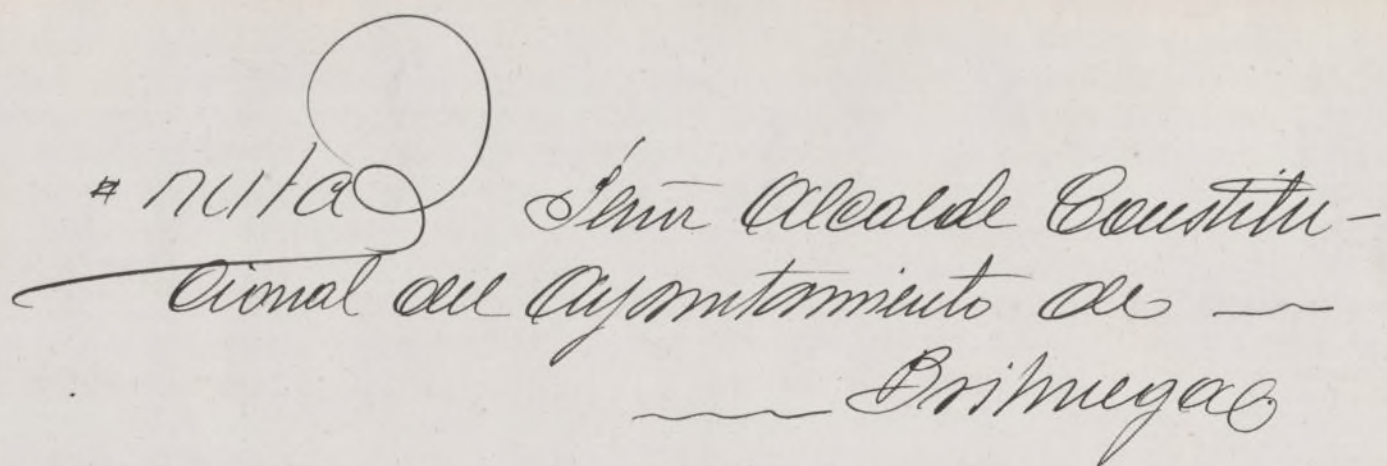 Señor Alcalde Constitu-
cional del Ayuntamiento de
Brihuega